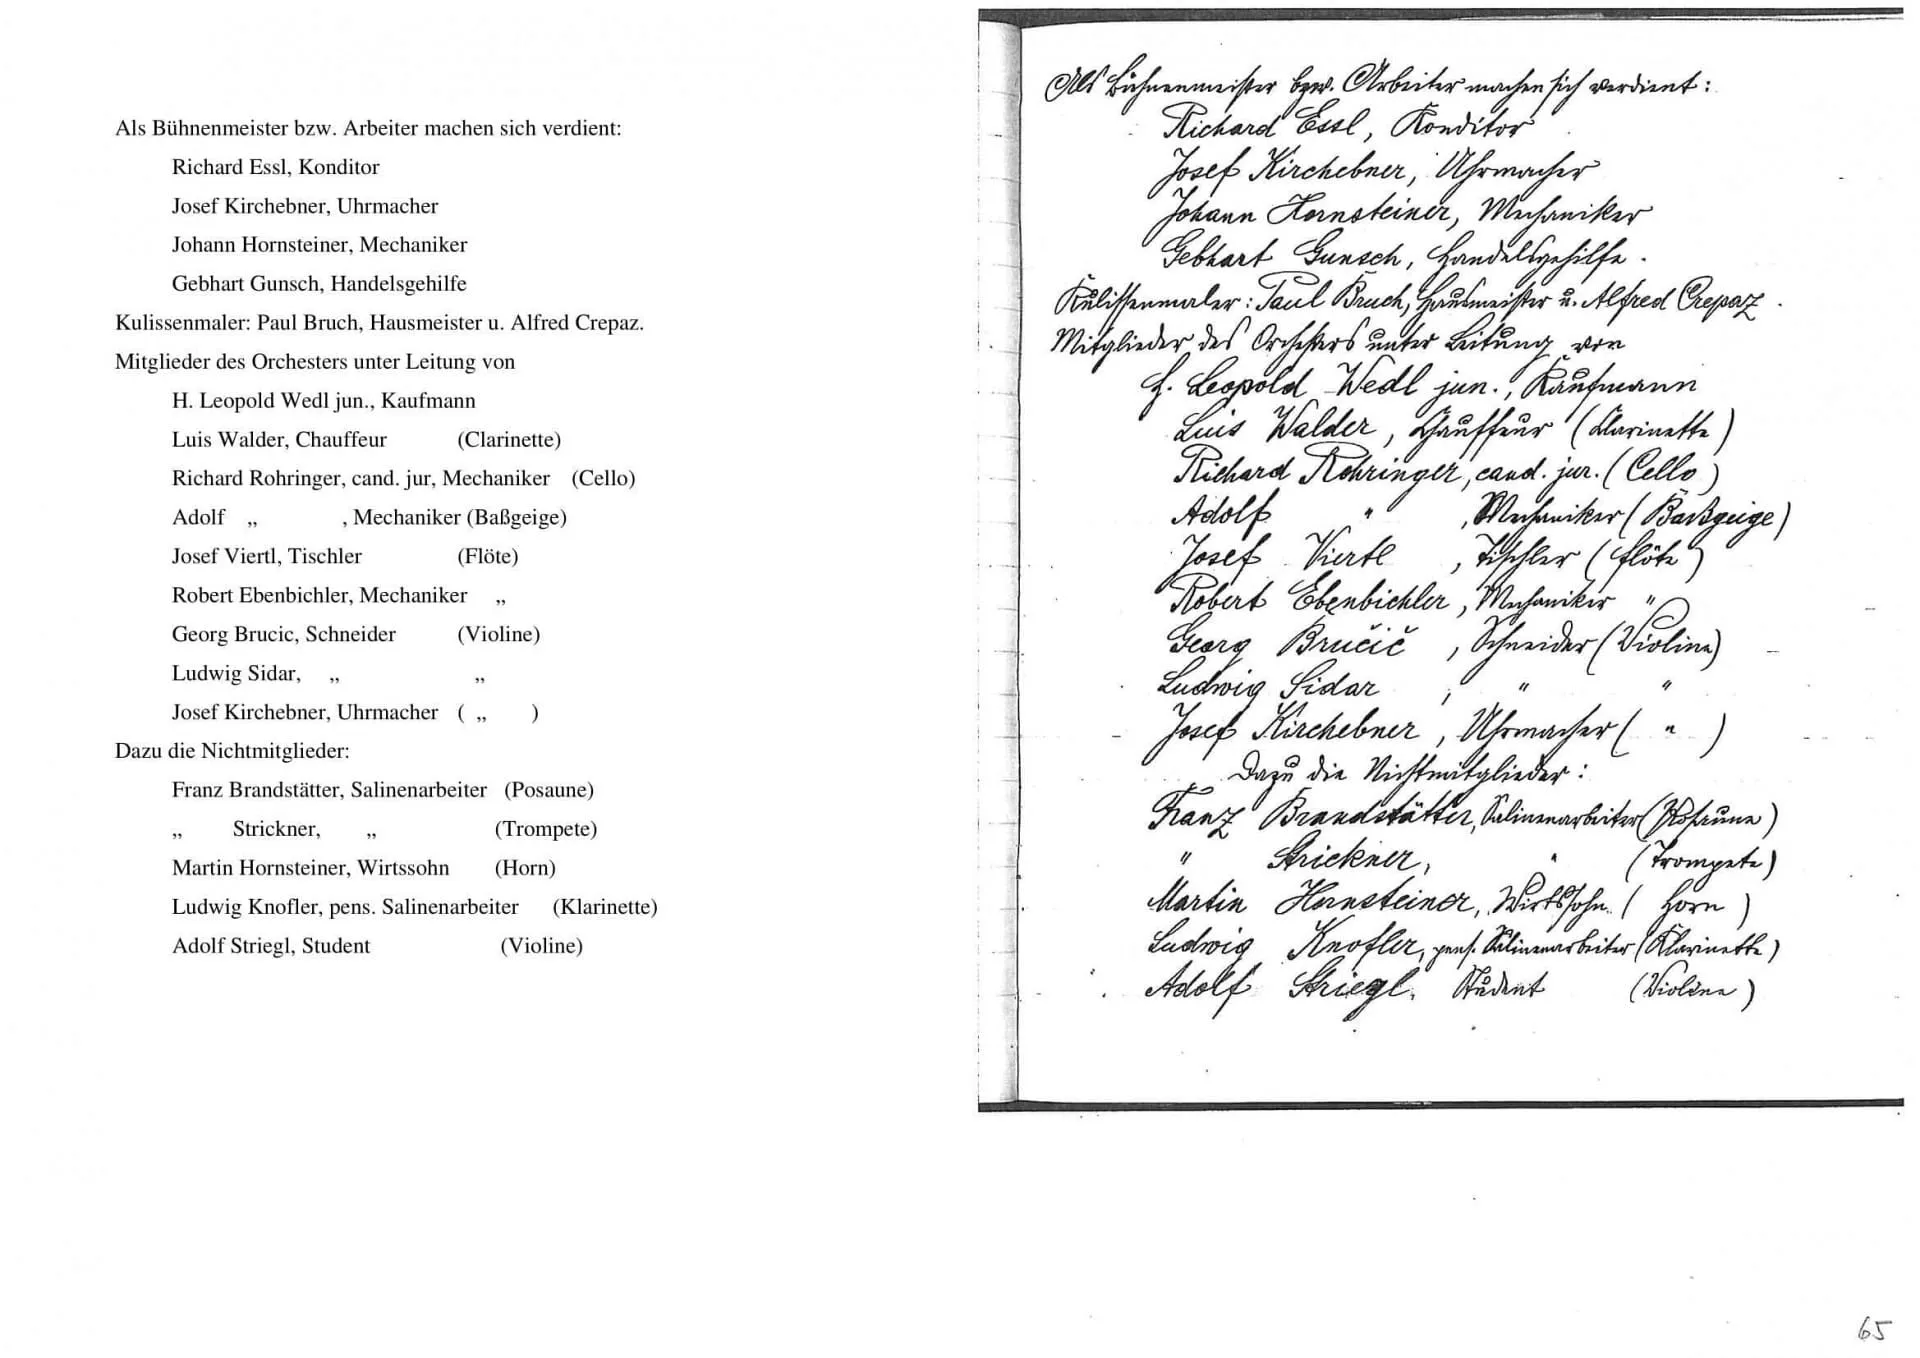 Als Bühnenmeister bzw. Arbeiter machen sich verdient:
Richard Essl, Konditor
Josef Kirchebner, Uhrmacher
Johann Hornsteiner, Mechaniker
Gebhart Gunsch, Handelsgehilfe
Kulissenmaler: Paul Bruch, Hausmeister u. Alfred Crepaz.
Mitglieder des Orchesters unter Leitung von
H. Leopold Wedl jun., Kaufmann
Luis Walder, Chauffeur (Clarinette)
Richard Rohringer, cand. jur, Mechaniker (Cello)
Adolf „ , Mechaniker (Baßgeige)
Josef Viertl, Tischler (Flöte)
Robert Ebenbichler, Mechaniker „
Georg Brucic, Schneider (Violine)
Ludwig Sidar, „ „
Josef Kirchebner, Uhrmacher ( „ )
Dazu die Nichtmitglieder:
Franz Brandstätter, Salinenarbeiter (Posaune)
„ Strickner, „ (Trompete)
Martin Hornsteiner, Wirtssohn (Horn)
Ludwig Knofler, pens. Salinenarbeiter (Klarinette)
Adolf Striegl, Student (Violine)
Als Bühnenmeister bzw. Arbeiter machen sich verdient:
Richard Essl, Konditor
Josef Kirchebner, Uhrmacher
Johann Hornsteiner, Mechaniker
Gebhart Gunsch, Handelsgehilfe.
Kulissenmaler: Paul Bruch, Hausmeister u. Alfred Crepaz.
Mitglieder des Orchesters unter Leitung von
H. Leopold Wedl jun., Kaufmann
Luis Walder, Chauffeur (Klarinette)
Richard Rohringer, cand. jur. (Cello)
Adolf " , Mechaniker (Baßgeige)
Josef Viertl, Tischler (Flöte)
Robert Ebenbichler, Mechaniker "
Georg Bručič, Schneider (Violine)
Ludwig Sidar, " "
Josef Kirchebner, Uhrmacher ( " )
Dazu die Nichtmitglieder:
Franz Brandstätter, Salinenarbeiter (Posaune)
" Strickner, " (Trompete)
Martin Hornsteiner, Wirtssohn (Horn)
Ludwig Knofler, pens. Salinenarbeiter (Klarinette)
Adolf Striegl, Student (Violine)
65